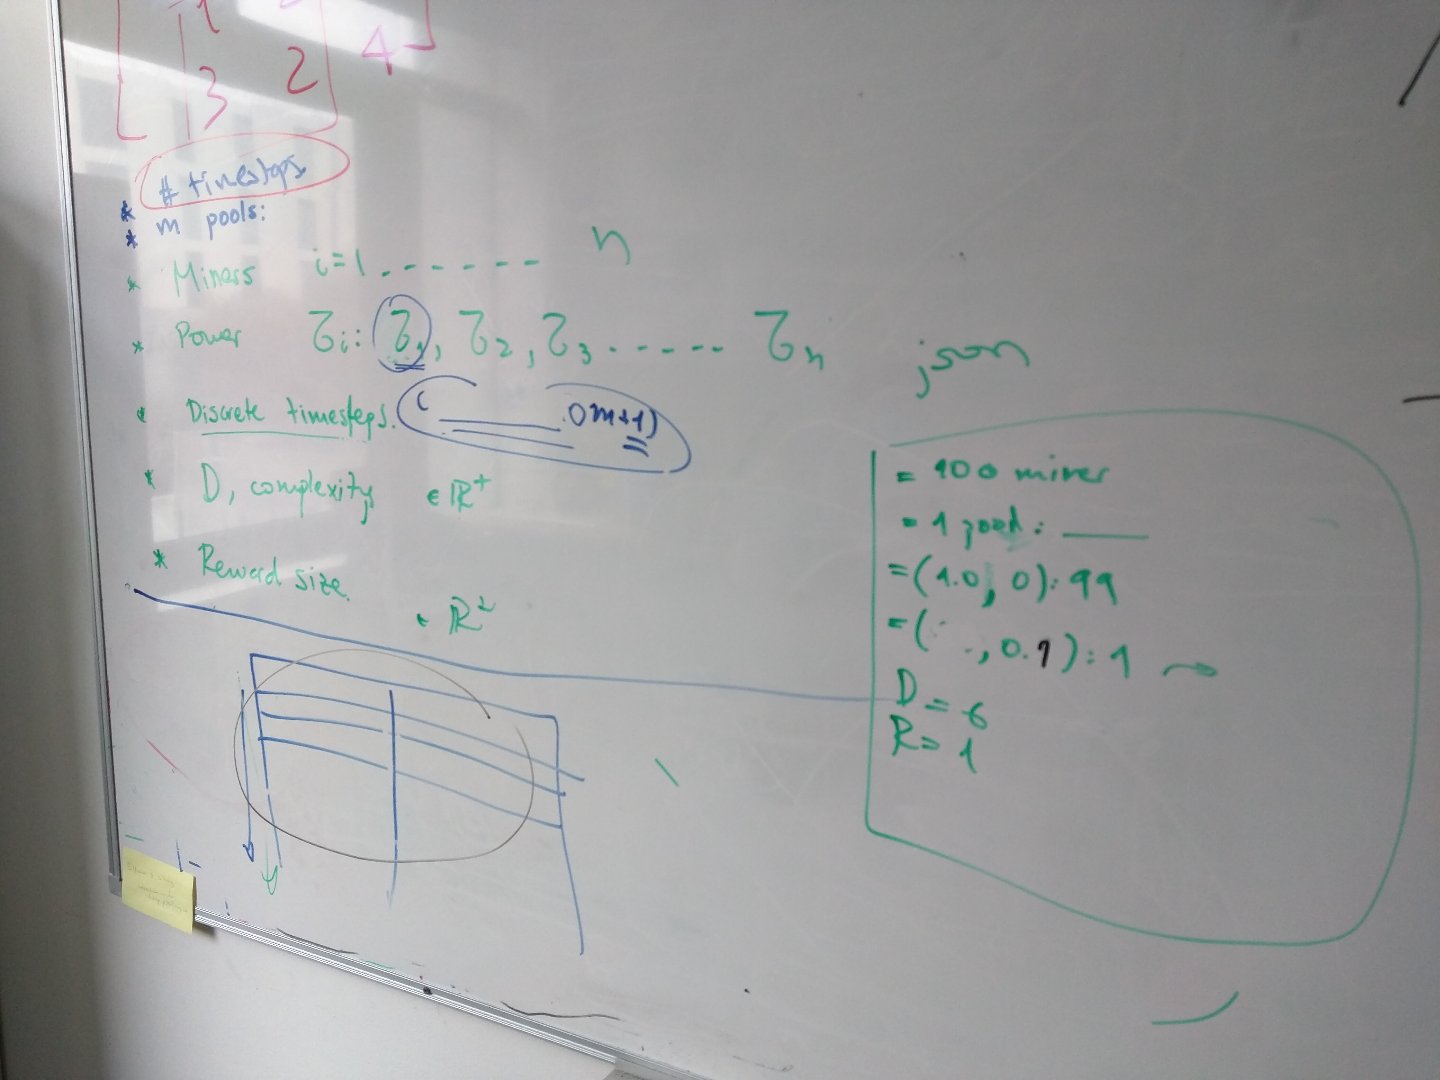 1
3 2 4
# timesteps
* m pools:
*
* Miners i=1 ------ n
* Power τi: τ1, τ2, τ3 ----- τn
* Discrete timesteps. ( 0m+1)
* D, complexity ∈ ℝ+
* Reward size.
∈ ℝ+
json
= 100 miner
= 1 pool: ___
=(1.0, 0):99
=( , 0.1):1
D = 6
R = 1